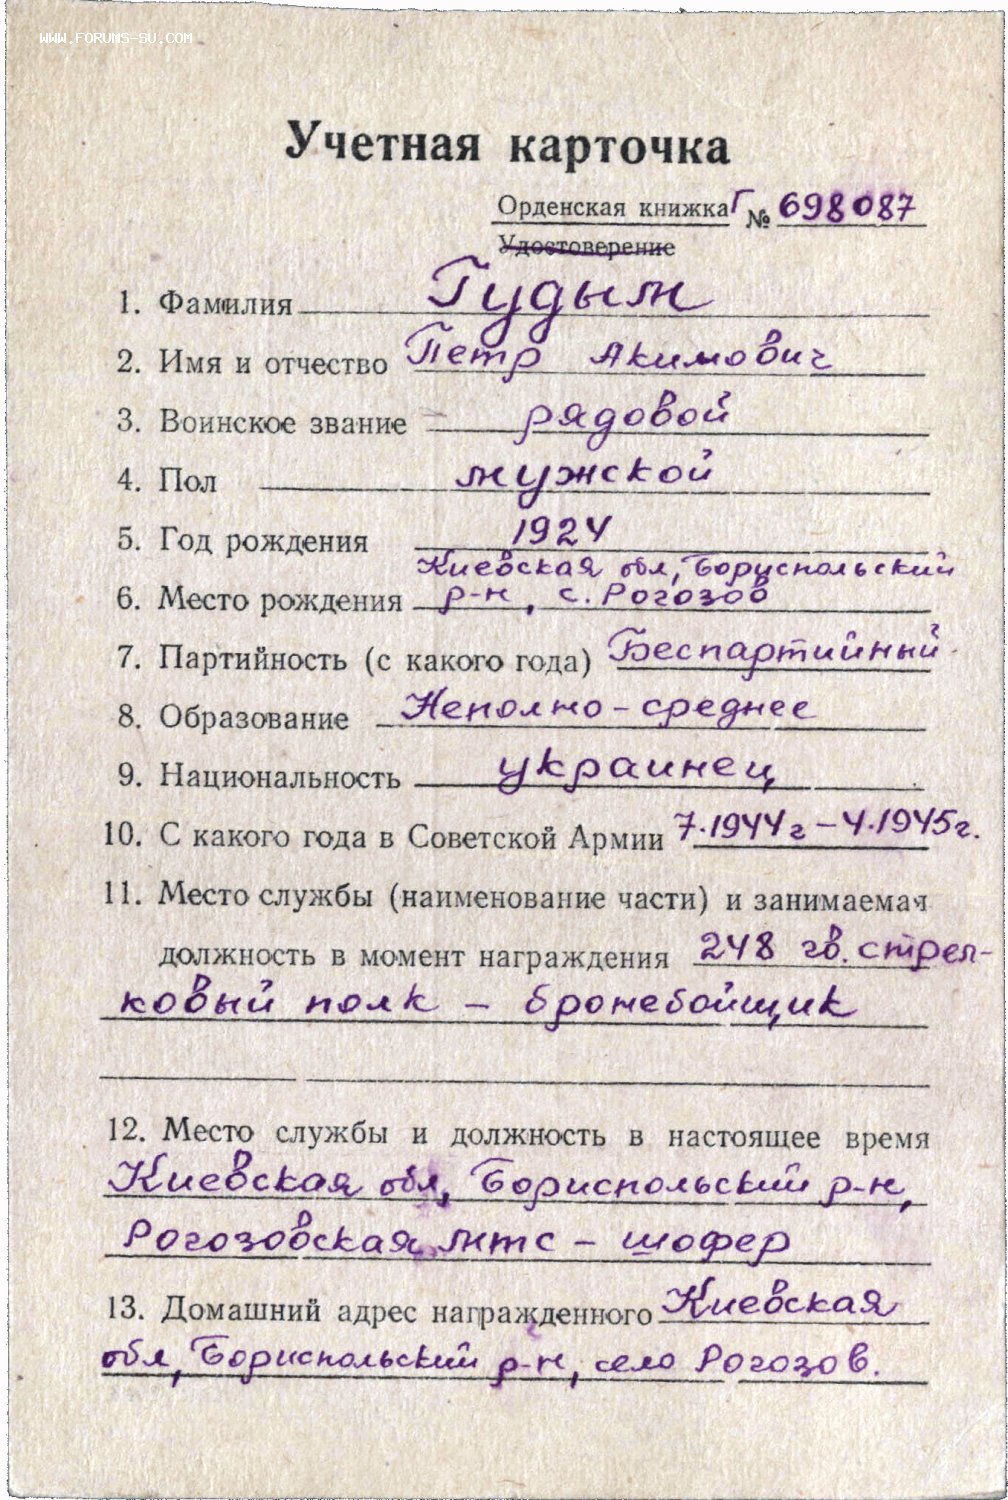 WWW.FORUMS-SU.COM
Учетная карточка
Орденская книжка Г № 698087
Удостоверение
1. Фамилия Гудым
2. Имя и отчество Петр Акимович
3. Воинское звание рядовой
4. Пол мужской
5. Год рождения 1924
Киевская обл, Бориспольский
6. Место рождения р-н, с. Рогозов
7. Партийность (с какого года) Беспартийный
8. Образование Неполно-среднее
9. Национальность украинец
10. С какого года в Советской Армии 7.1944г – 4.1945г.
11. Место службы (наименование части) и занимаемая
должность в момент награждения 248 гв. стрел-
ковый полк – бронебойщик
12. Место службы и должность в настоящее время
Киевская обл, Бориспольский р-н,
Рогозовская мтс – шофер
13. Домашний адрес награжденного Киевская
обл, Бориспольский р-н, село Рогозов.